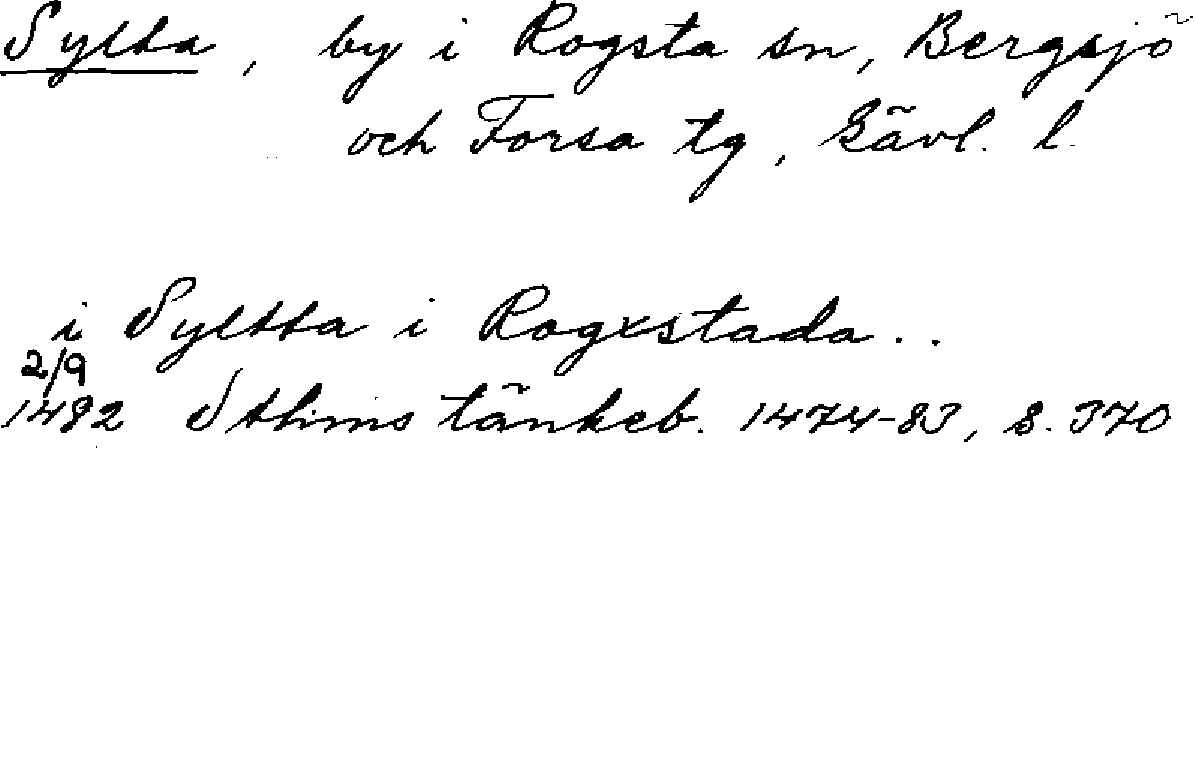 Sylta, by i Rogsta sn, Bergsjö
och Forsa tg, Gävl. l.
i Syltta i Rogxstada..
2/9
1482 Sthms tänkeb. 1474-83, s. 370